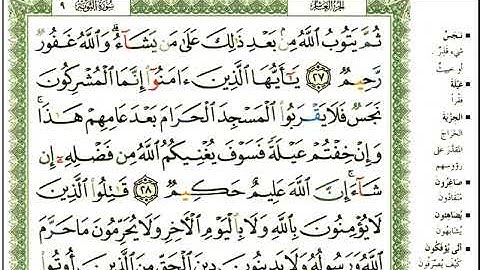 الجزء العاشر
سورة التوبة
٩
ثُمَّ يَتُوبُ اللَّهُ مِنْ بَعْدِ ذَٰلِكَ عَلَىٰ مَن يَشَآءُ ۗ وَاللَّهُ غَفُورٌ
رَّحِيمٌ ﴿٢٧﴾ يَٰٓأَيُّهَا الَّذِينَ ءَامَنُوٓا إِنَّمَا الْمُشْرِكُونَ
نَجَسٌ فَلَا يَقْرَبُوا الْمَسْجِدَ الْحَرَامَ بَعْدَ عَامِهِمْ هَٰذَا ۚ
وَإِنْ خِفْتُمْ عَيْلَةً فَسَوْفَ يُغْنِيكُمُ اللَّهُ مِن فَضْلِهِۦٓ إِن
شَآءَ ۚ إِنَّ اللَّهَ عَلِيمٌ حَكِيمٌ ﴿٢٨﴾ قَٰتِلُوا الَّذِينَ
لَا يُؤْمِنُونَ بِاللَّهِ وَلَا بِالْيَوْمِ الْءَاخِرِ وَلَا يُحَرِّمُونَ مَا حَرَّمَ
اللَّهُ وَرَسُولُهُۥ وَلَا يَدِينُونَ دِينَ الْحَقِّ مِنَ الَّذِينَ أُوتُوا
نَجَسٌ
شيء قذر
أو خبيث
عَيْلَةً
فقراً
الجِزْيَةَ
الخراج
المقدّر على
رؤوسهم
صَاغِرُونَ
منقادون
يُضَاهِئُونَ
يشابهون
أَنَّى يُؤْفَكُونَ
كيف يُصرَفون